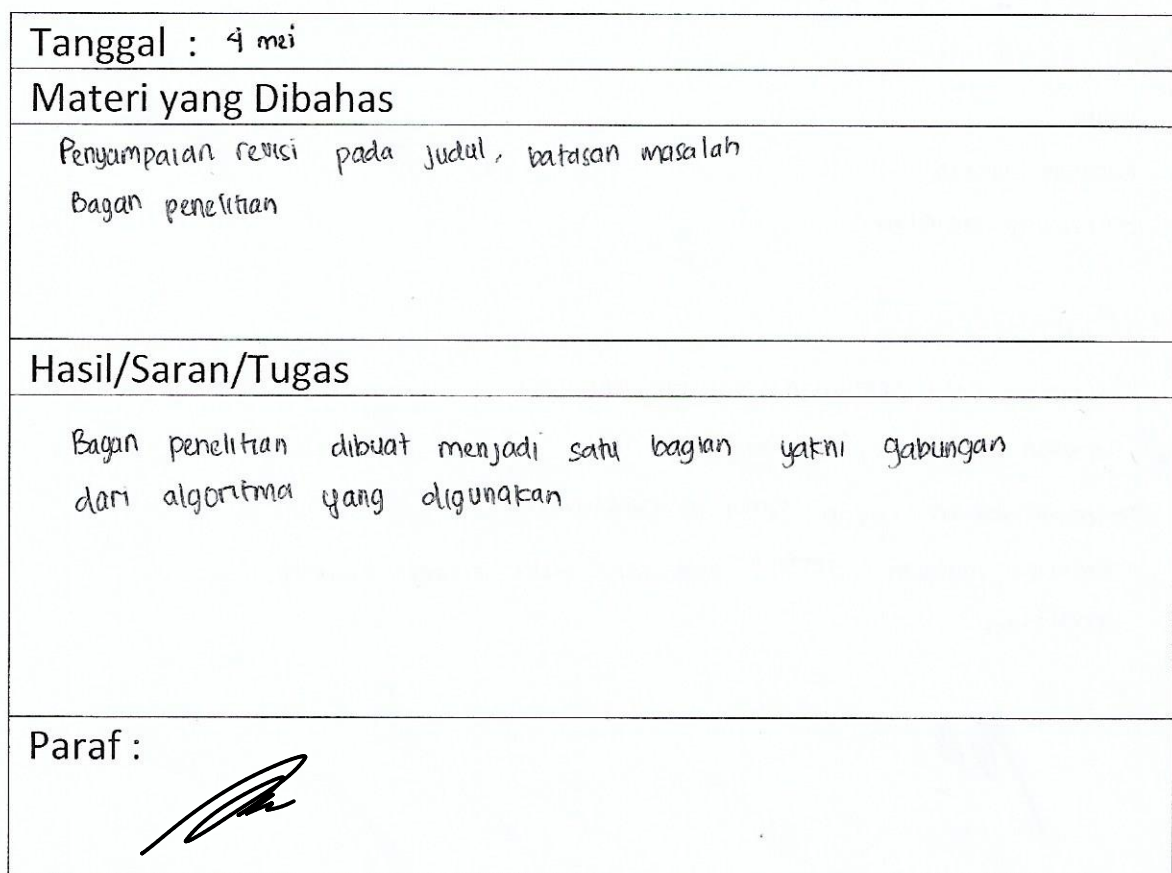 Tanggal : 4 mei
Materi yang Dibahas
Penyampaian revisi pada judul, batasan masalah
Bagan penelitian
Hasil/Saran/Tugas
Bagan penelitian dibuat menjadi satu bagian yakni gabungan
dari algoritma yang digunakan
Paraf :